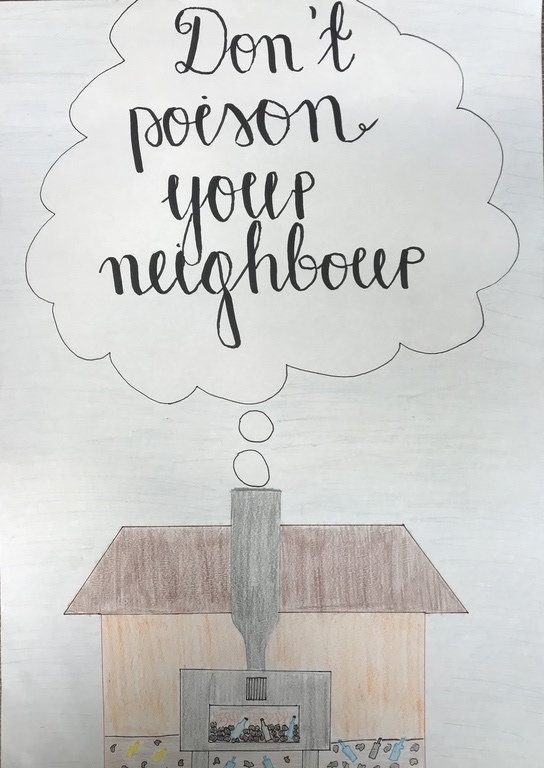 Don't
poison
your
neighbour